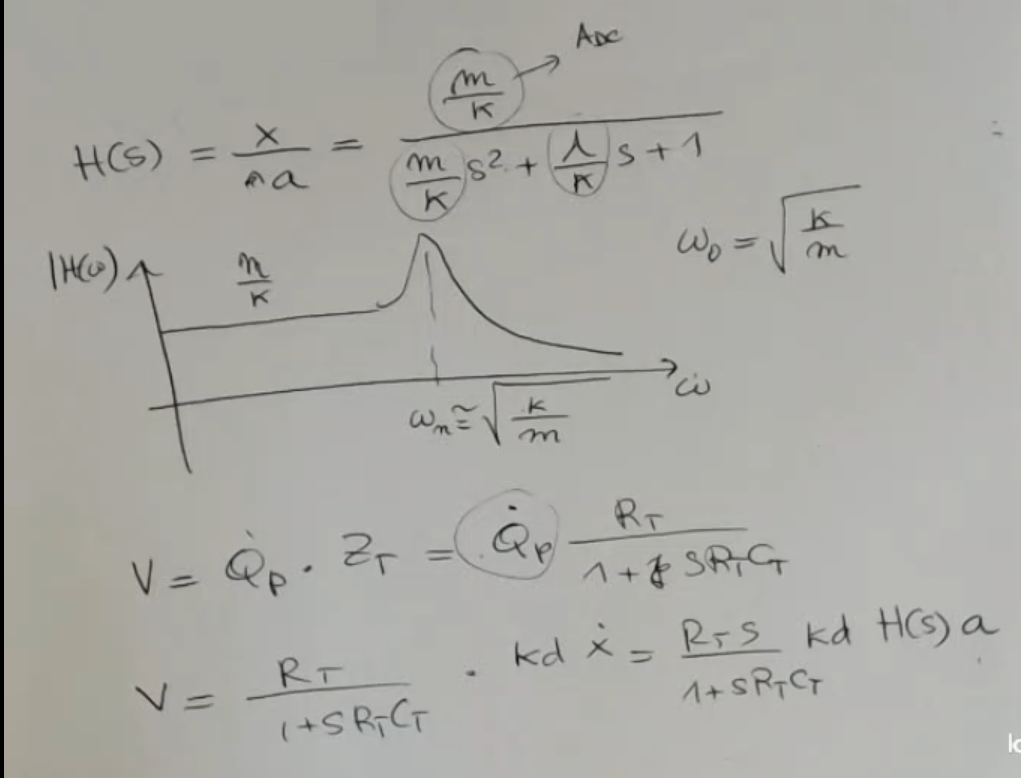 A_DC
H(s) = x/a = (m/K)/((m/K) s² + (λ/K) s + 1)
ω₀ = √(K/m)
|H(ω)
m/K
ω
ωₙ ≅ √(K/m)
V = Q̇p · Z_T = Q̇p R_T/(1 + S R_T C_T)
V = R_T/(1 + S R_T C_T) · kd ẋ = R_T S/(1 + S R_T C_T) kd H(s) a